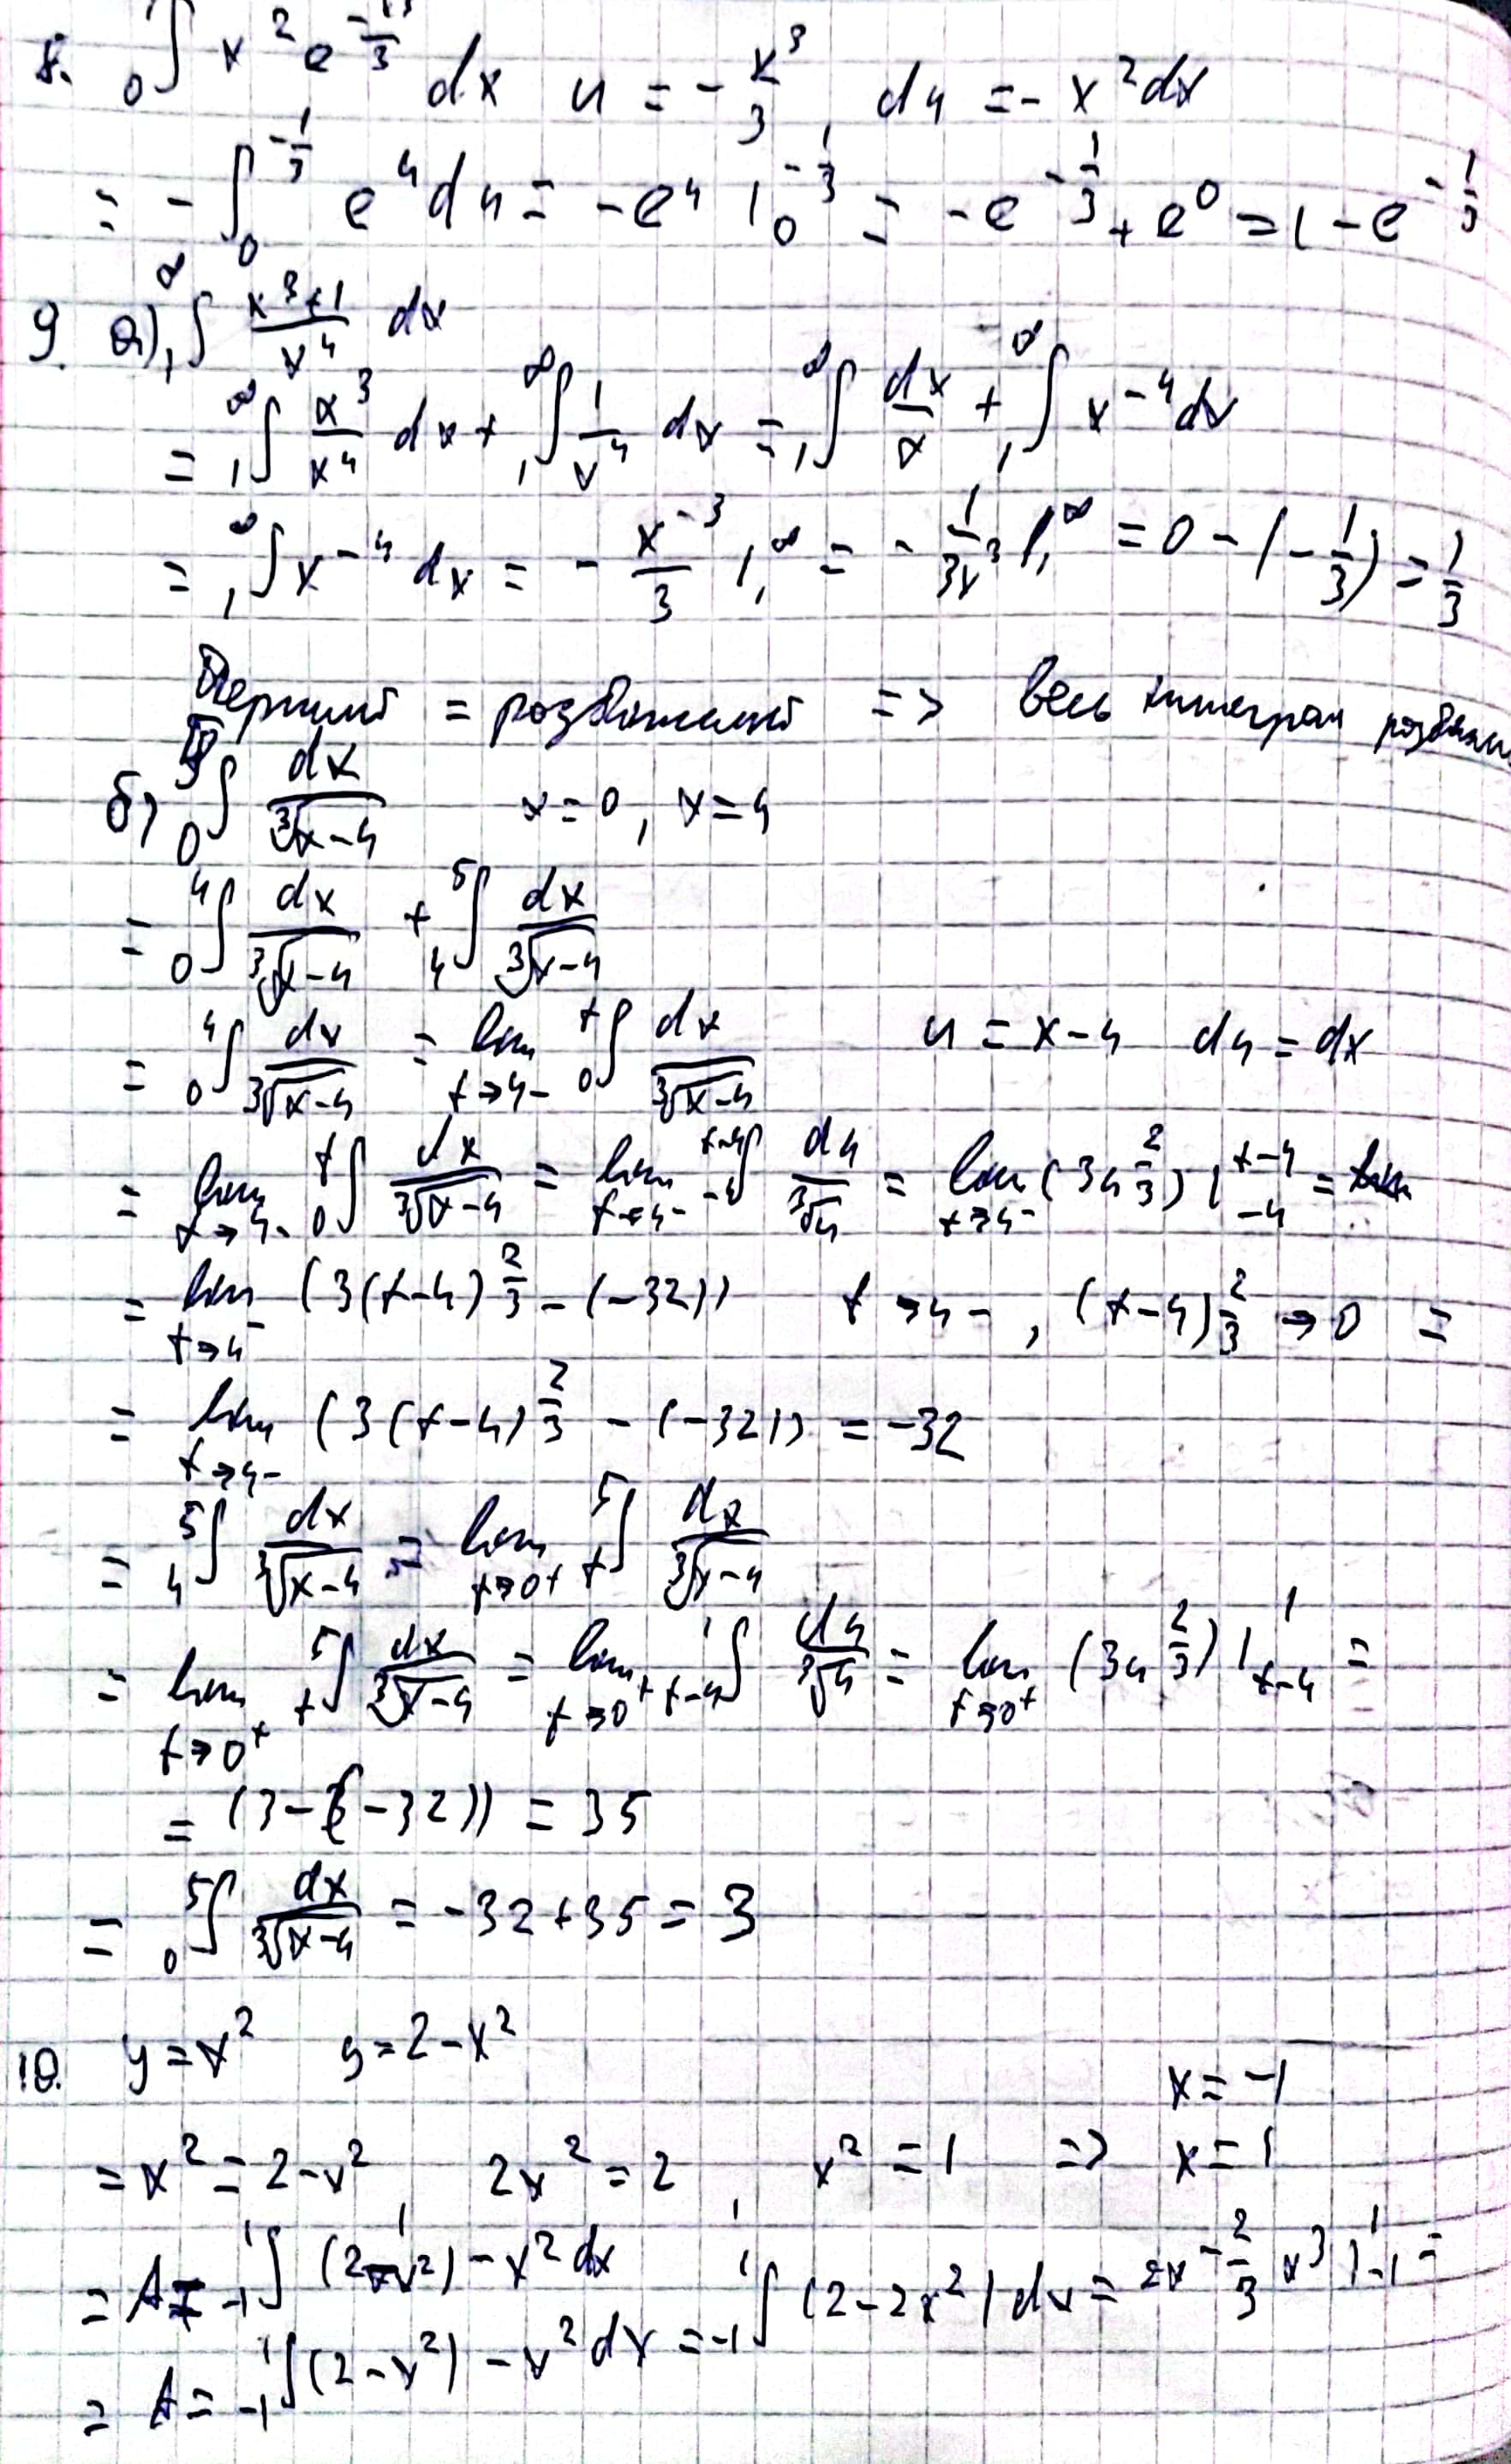 8. ₀∫ x² e^(-x³/3) dx u = - x³/3, du = - x² dx
= - ∫₀^(-1/3) e^u du = -e^u |₀^(-1/3) = -e^(-1/3) + e⁰ = 1 - e^(-1/3)
9. а) ₁∫^∞ (x³+1)/x⁴ dx
= ₁∫^∞ x³/x⁴ dx + ₁∫^∞ 1/x⁴ dx = ₁∫^∞ dx/x + ₁∫^∞ x⁻⁴ dx
= ₁∫^∞ x⁻⁴ dx = - x⁻³/3 |₁^∞ = - 1/(3x³) |₁^∞ = 0 - (-1/3) = 1/3
Перший = розбіжний => весь інтеграл
б) ₀∫⁵ dx/∛(x-4) x=0, x=4
= ₀∫⁴ dx/∛(x-4) + ₄∫⁵ dx/∛(x-4)
= ₀∫⁴ dx/∛(x-4) = lim t→4- ₀∫^t dx/∛(x-4) u = x-4 du = dx
= lim t→4- ₀∫^t dx/∛(x-4) = lim t→4- ₋₄∫^(t-4) du/∛u = lim t→4- (3u^(2/3)) |₋₄^(t-4) =
= lim t→4- (3(t-4)^(2/3) - (-32)) t→4-, (t-4)^(2/3) → 0 =
= lim t→4- (3(t-4)^(2/3) - (-32)) = -32
= ₄∫⁵ dx/∛(x-4) = lim t→0+ t∫⁵ dx/∛(x-4)
= lim t→0+ t∫⁵ dx/∛(x-4) = lim t→0+ t-4∫¹ du/∛u = lim t→0+ (3u^(2/3)) |t-4^1 =
= (3-(-32)) = 35
= ₀∫⁵ dx/∛(x-4) = -32+35 = 3
10. y = x² y = 2 - x²
x = -1
= x² = 2 - x² 2x² = 2, x² = 1 => x = 1
= A = ₋₁∫¹ (2-x²) - x² dx ₋₁∫¹ (2-2x²) dx = 2x - 2/3 x³ |₋₁¹ =
= A = ₋₁∫¹ (2-x²) - x² dx =